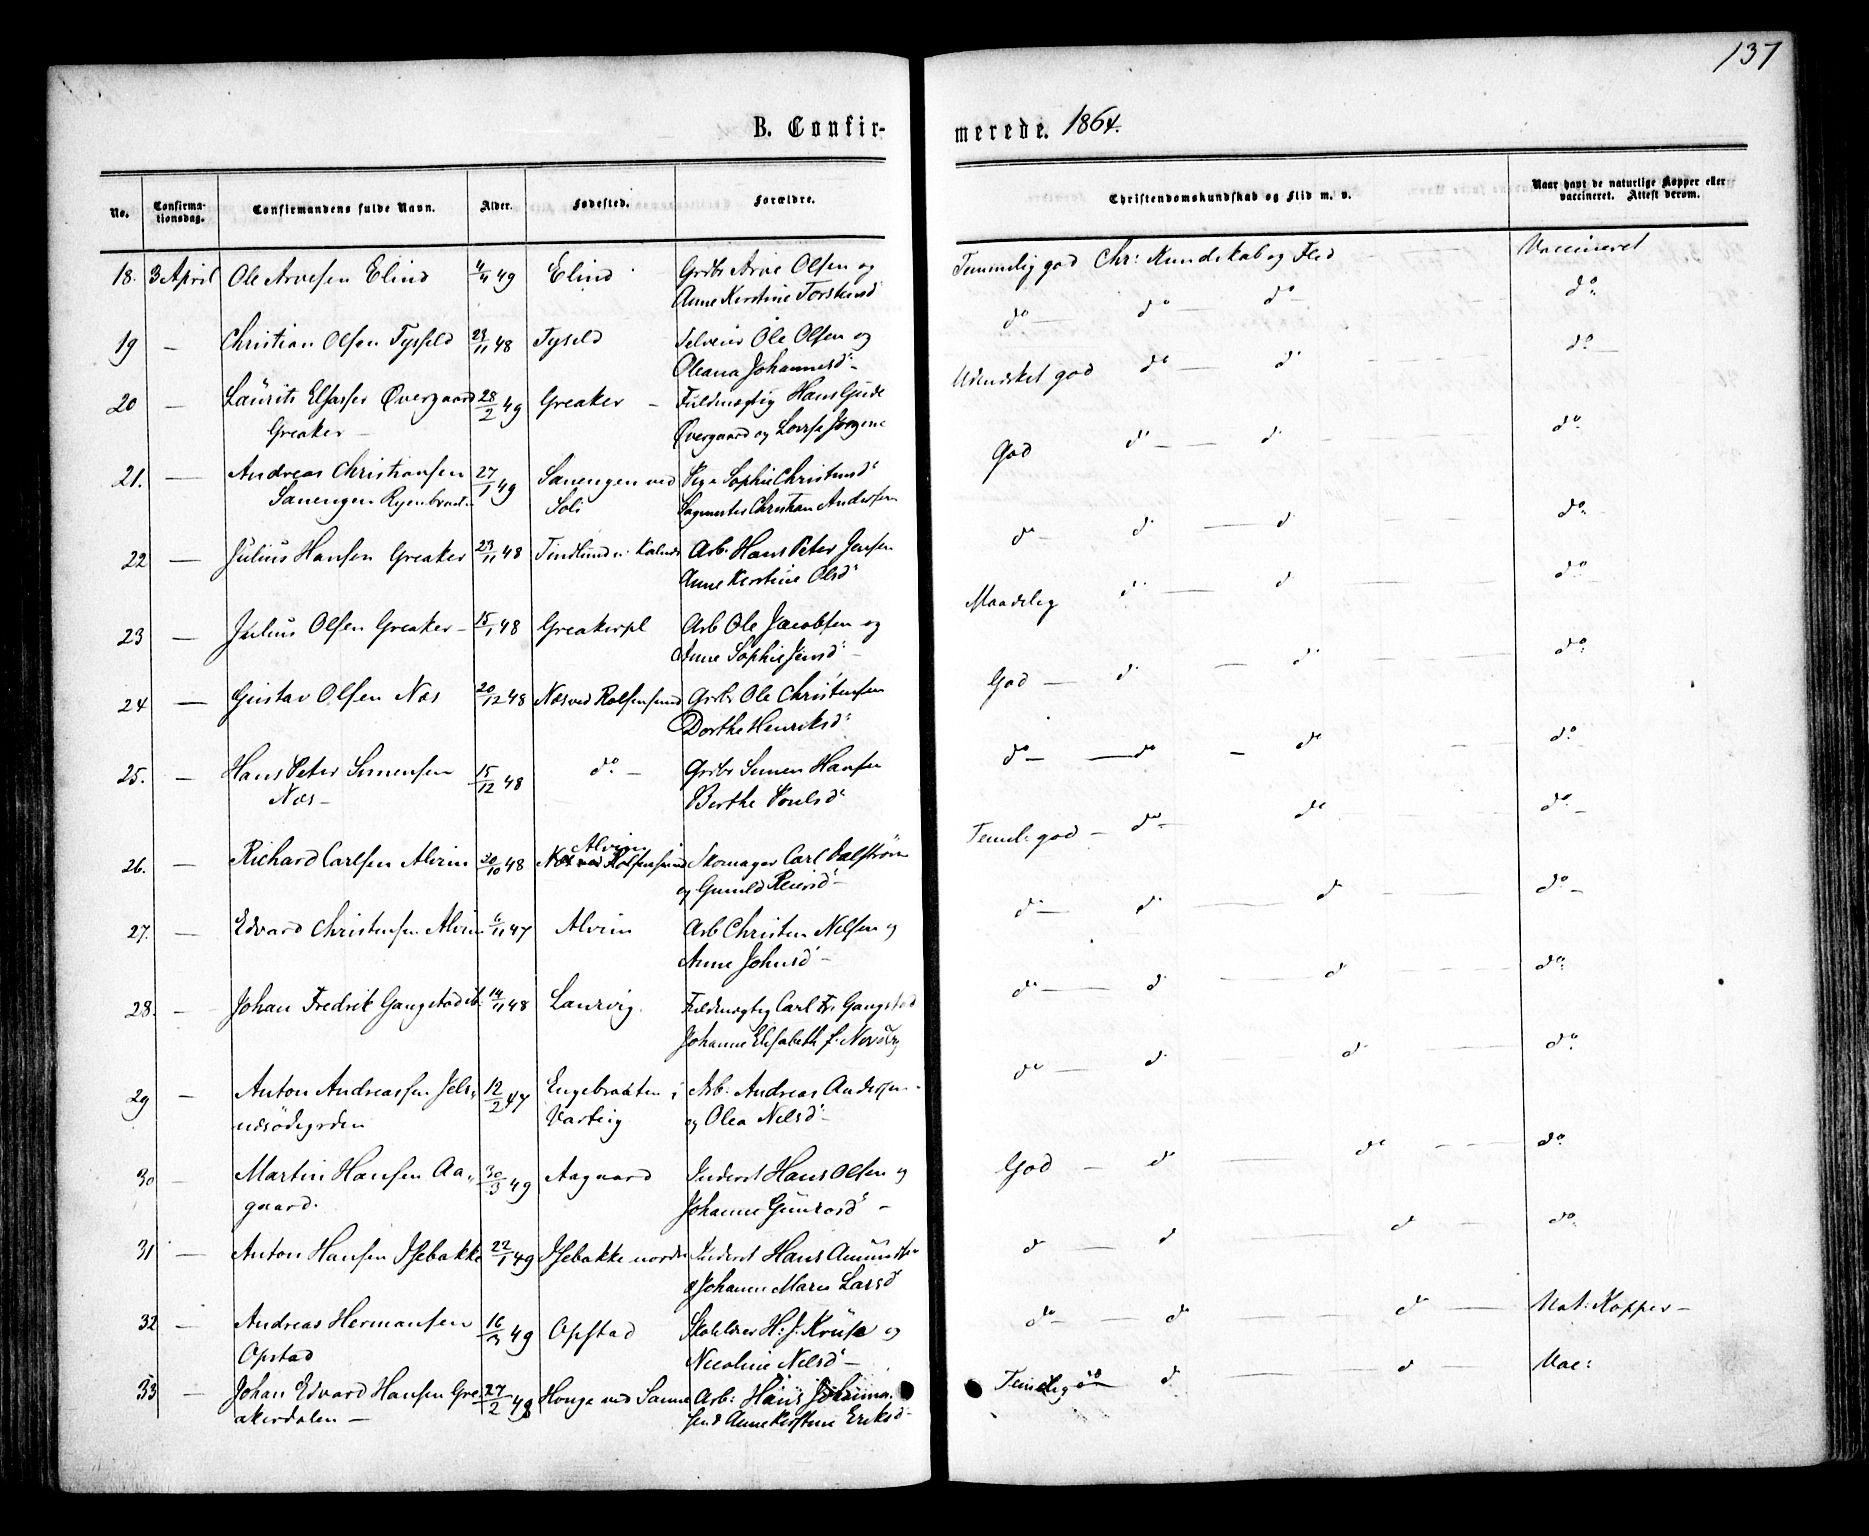 137
B. Confirmerede. 1864.
No. Confirmationsdag. Confirmandens fulde Navn. Alder. Fødested. Forældre. Christendomskundskab og Flid m. v. Naar havt de naturlige Kopper eller vaccineret. Attest derom.
18. 3 April Ole Arvesen Elind 4/11 49 Elind Grdbr Arve Olsen og Temmelig god Chr: Kundskab og Flid Vaccineret
Anne Kerstine Torstensd
19 — Christian Olsen Tyseld 23/11 48 Tyseld Selveier Ole Olsen og do — do do do
Oleana Johannesd —
20 — Laurits Elfasser Øvergaard 28/2 49 Greaker — Fuldmægtig Hans Gude Udmerket god do — do do
Greaker — Øvergaard og Lovise Jørgine
21. — Andreas Christiansen 27/1 49 Sanengen ved Pige Sophie Christensd God do — do do
Sanengen Soli Sagmester Christian Andersen
22 — Julius Hansen Greaker 23/11 48 Tindlund Arb. Hans Peter Jensen do — do — do do
Anne Kerstine Olsd
23 — Julius Olsen Greaker — 15/1 48 Greakerpl Arb Ole Jacobsen og Maadelig do — do do
Anne Sophie Jensd —
24 — Gustav Olsen Næs 20/12 48 Næs ved Rolfsøsund Grdbr Ole Christensen God — do — do do
Dorthe Henriksd
25. — Hans Peter Simensen 15/12 48 do — Grdbr Simen Hansen do — do — do do
Næs — Berthe Poulsd
26. — Richard Carlsen Alvim 20/10 48 Alvim Skomager Carl Dalstrøm Temeli god — do — do do —
og Gunild Reiersd —
27. — Edvard Christensen Alvim 6/11 47 Alvim Arb Christen Nilsen og do — do — do do —
Anne Johnsd —
28. — Johan Fredrik Gangstad 14/11 48 Laurvig. Fuldmægtig Carl Fr. Gangstad do — do — do do
Johanne Elisabeth f.
29 — Anton Andreassen 12/2 47 Engebraaten i Arb: Andreas Andersen do do — do do
udsødegrden Varteig og Olea Nilsd —
30 — Martin Hansen Aa- 30/3 49 Aagaard Inderst Hans Olsen og God — do — do do
gaard. Johanne Gunrosd —
31 — Anton Hansen Isebakke 22/1 49 Isebakke nordr Inderst Hans Amundsen do — do — do — do
og Johanne Marie Larsd
32 — Andreas Hermansen 16/3 49 Opstad H: J. Kruse og do — do — do — Nat: Kopper —
Opstad Nicoline Nilsd —
33 — Johan Edvard Hansen Gre- 27/2 49 Houge ved Sanne Arb: Hans Johannes- Temelig do do Vac:
akerdalen — sen & Anne Kirstine Eriksd —